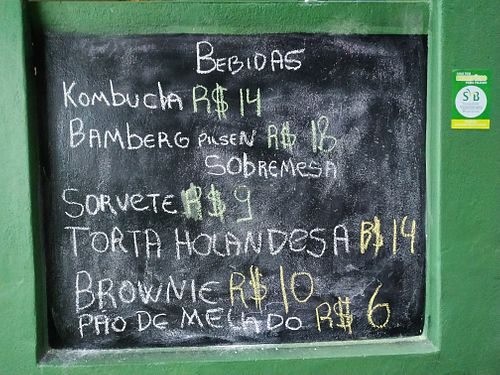 BEBIDAS
KOMBUCHA R$ 14
BAMBERG PILSEN R$ 18
SOBREMESA
SORVETE R$ 9
TORTA HOLANDESA R$ 14
BROWNIE R$ 10
PÃO DE MELADO R$ 6
SVB